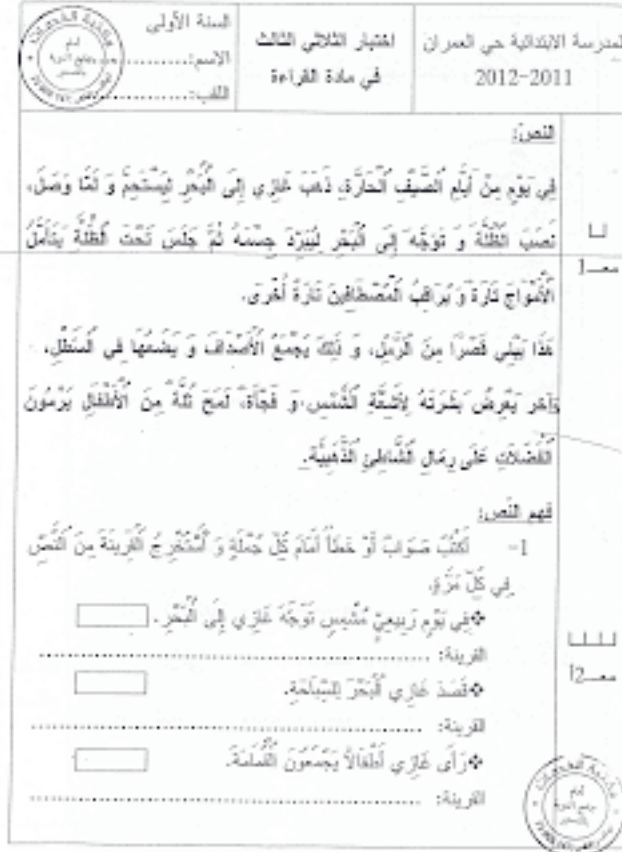 المدرسة الابتدائية حي العمران
2011-2012
اختبار الثلاثي الثالث
في مادة القراءة
السنة الأولى
الاسم:............
اللقب:............
النص:
فِي يَوْمٍ مِنْ أَيَّامِ الصَّيْفِ الْحَارَّةِ، ذَهَبَ غَازِي إِلَى الْبَحْرِ لِيَسْتَحِمَّ وَ لَمَّا وَصَلَ،
نَصَبَ الظُّلَّةَ وَ تَوَجَّهَ إِلَى الْبَحْرِ لِيُبَرِّدَ جِسْمَهُ ثُمَّ جَلَسَ تَحْتَ الظُّلَّةِ يَتَأَمَّلُ
الْأَمْوَاجَ تَارَةً وَ يُرَاقِبُ الْمُصْطَافِينَ تَارَةً أُخْرَى.
هَذَا يَبْنِي قَصْرًا مِنَ الرَّمْلِ، وَ ذَلِكَ يَجْمَعُ الْأَصْدَافَ وَ يَضَعُهَا فِي السَّطْلِ،
وَآخَر يَعْرِضُ بَشَرَتَهُ لِأَشِعَّةِ الشَّمْسِ. وَ فَجْأَةً، لَمَحَ ثُلَّةً مِنَ الْأَطْفَالِ يَرْمُونَ
الْفَضَلَاتِ عَلَى رِمَالِ الشَّاطِئِ الذَّهَبِيَّةِ.
معـ1
فهم النص:
1- أَكْتُبُ صَوَابٌ أَوْ خَطَأٌ أَمَامَ كُلِّ جُمْلَةٍ وَ أَسْتَخْرِجُ الْقَرِينَةَ مِنَ النَّصِّ
فِي كُلِّ مَرَّةٍ.
❖فِي يَوْمٍ رَبِيعِيٍّ مُشْمِسٍ تَوَجَّهَ غَازِي إِلَى الْبَحْرِ.
القرينة: ........................................
❖قَصَدَ غَازِي الْبَحْرَ لِلسِّبَاحَةِ.
القرينة: ........................................
❖رَأَى غَازِي أَطْفَالًا يَجْمَعُونَ الْقُمَامَةَ.
القرينة: ........................................
معـ2أ